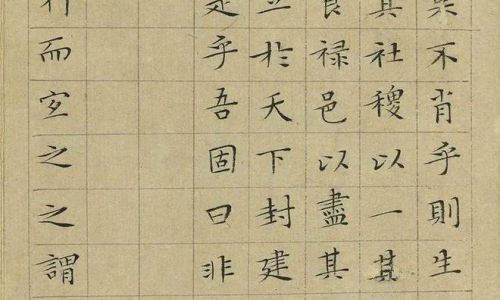 果不肖乎則生
其社稷以一其
食禄邑以盡其
立扵天下封建
是乎吾固曰非
行而宜之之謂